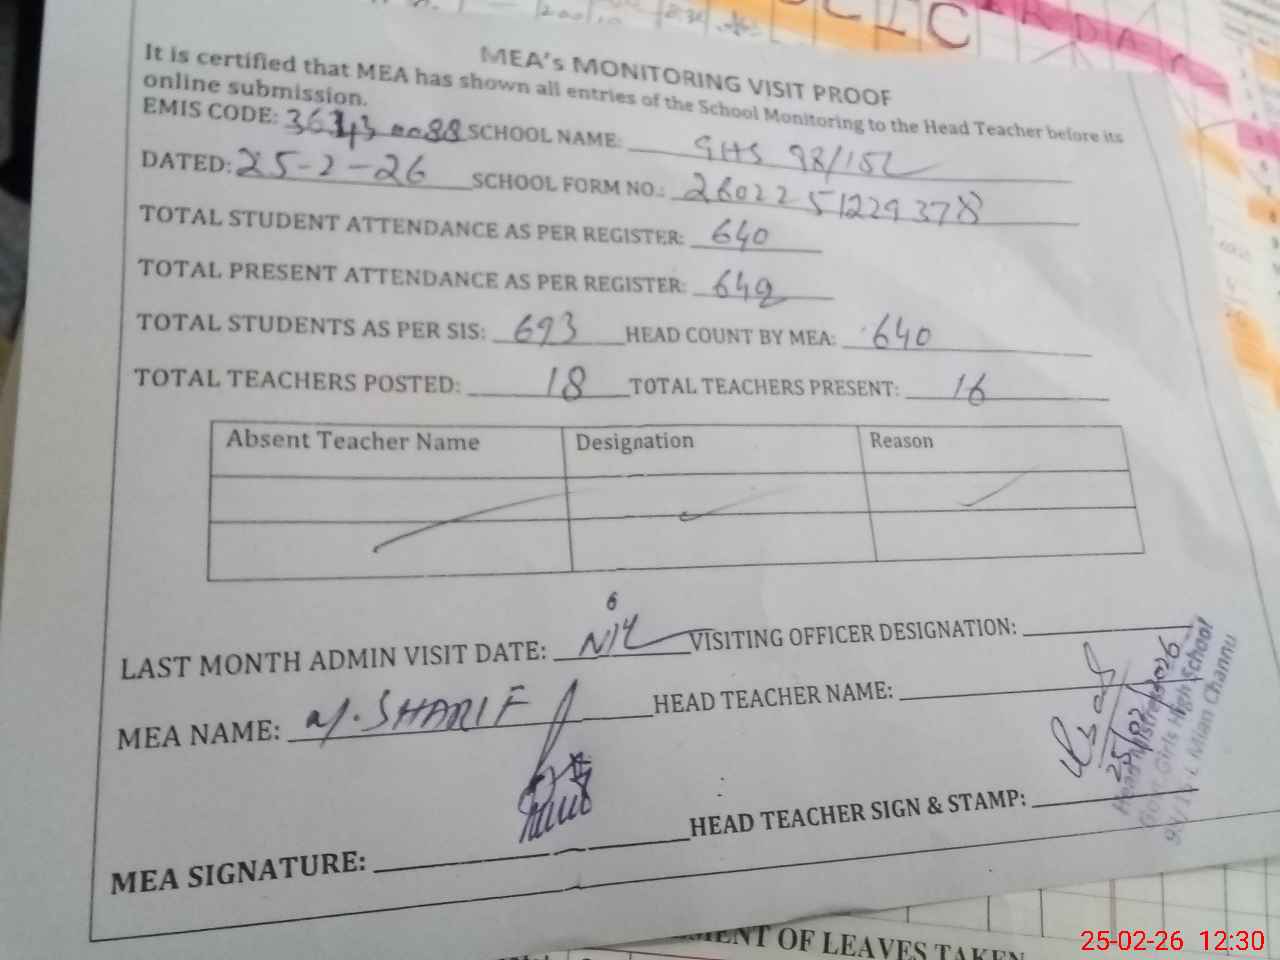 MEA's MONITORING VISIT PROOF
It is certified that MEA has shown all entries of the School Monitoring to the Head Teacher before its
online submission.
EMIS CODE: 36343 0088 SCHOOL NAME: GHS 98/15L
DATED: 25-2-26 SCHOOL FORM NO.: 2602251229378
TOTAL STUDENT ATTENDANCE AS PER REGISTER: 640
TOTAL PRESENT ATTENDANCE AS PER REGISTER: 640
TOTAL STUDENTS AS PER SIS: 693 HEAD COUNT BY MEA: 640
TOTAL TEACHERS POSTED: 18 TOTAL TEACHERS PRESENT: 16
Absent Teacher Name Designation Reason
LAST MONTH ADMIN VISIT DATE: NIL VISITING OFFICER DESIGNATION:
MEA NAME: M. SHARIF HEAD TEACHER NAME:
25/02/2026
Headmistress
Govt. Girls High School
98/15 L Mian Channu
MEA SIGNATURE: HEAD TEACHER SIGN & STAMP:
OF LEAVES TAKEN
25-02-26 12:30